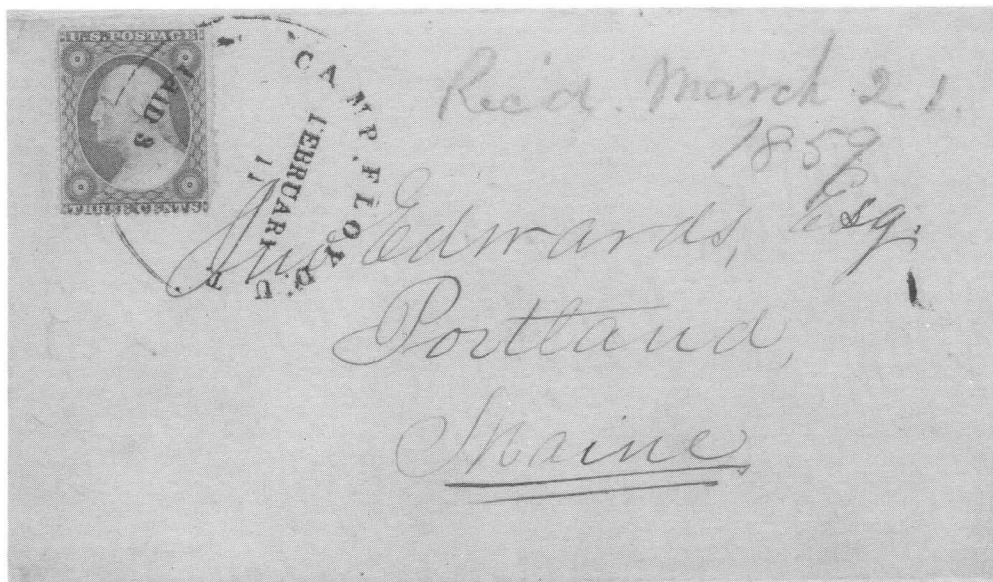 U.S. POSTAGE
THREE CENTS
PAID 3
CAMP. FLOYD. U. T.
FEBRUARY
11
Rec'd. March 21.
1859
Jno Edwards, Esq.
Portland,
Maine